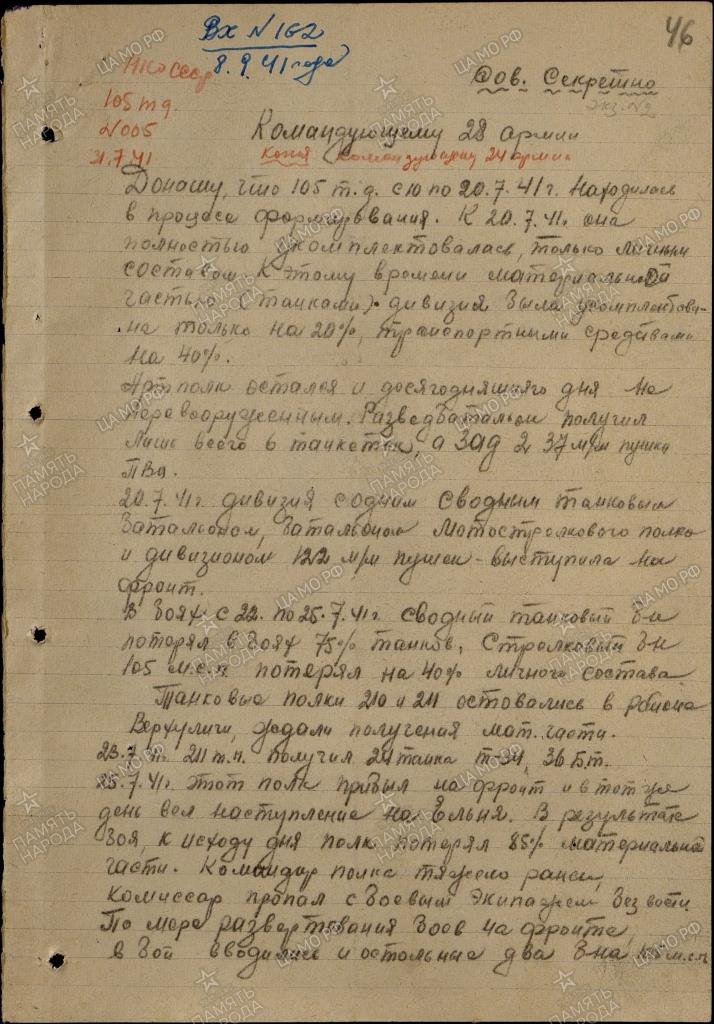 46
Вх N 162
8.9.41 года
НКО СССР
105 т д
N 005
31.7.41
Сов. Секретно
экз. N2
Командующему 28 армии
Копия Командующему 24 армии
Доношу, что 105 т.д. с 10 по 20.7.41г. находилась
в процесе формирования. К 20.7.41г. она
полностью укомплектовалась, только личным
составом. К этому времени материальной
частью (танками) дивизия была укомплектова-
на только на 20%, транспортными средствами
на 40%.
Артполк остался и досягодняшняго дня не
перевооруженным. Разведбатальон получил
лишь всего 6 танкеток, а ЗАД 2 37 м/м пушки
ПВО.
20.7.41г. дивизия содним сводным танковым
батальоном, батальоном мотострелкового полка
и дивизионом 122 м/м пушек - выступила на
фронт.
В боях с 22. по 25.7.41г. сводный танковый б-н
потерял в боях 75% танков, Стрелковый б-н
105 м.с.п. потерял на 40% личного состава.
Танковые полки 210 и 211 оставались в районе
Верхуличи, ждали получения мат. части.
23.7 211 т.п. получил 24 танка Т-34, 36 Б.т.
25.7.41г. этот полк прибыл на фронт и в тот уже
день вел наступление на Ельня. В результате
боя, к исходу дня полк потерял 85% материальной
части. Командир полка тяжело ранен,
комиссар пропал с боевым экипажем без вести
По мере развертования боев на фронте,
в бой вводились и остольные два б-на 105 м.с.п
ПАМЯТЬ НАРОДА
ЦАМО.РФ